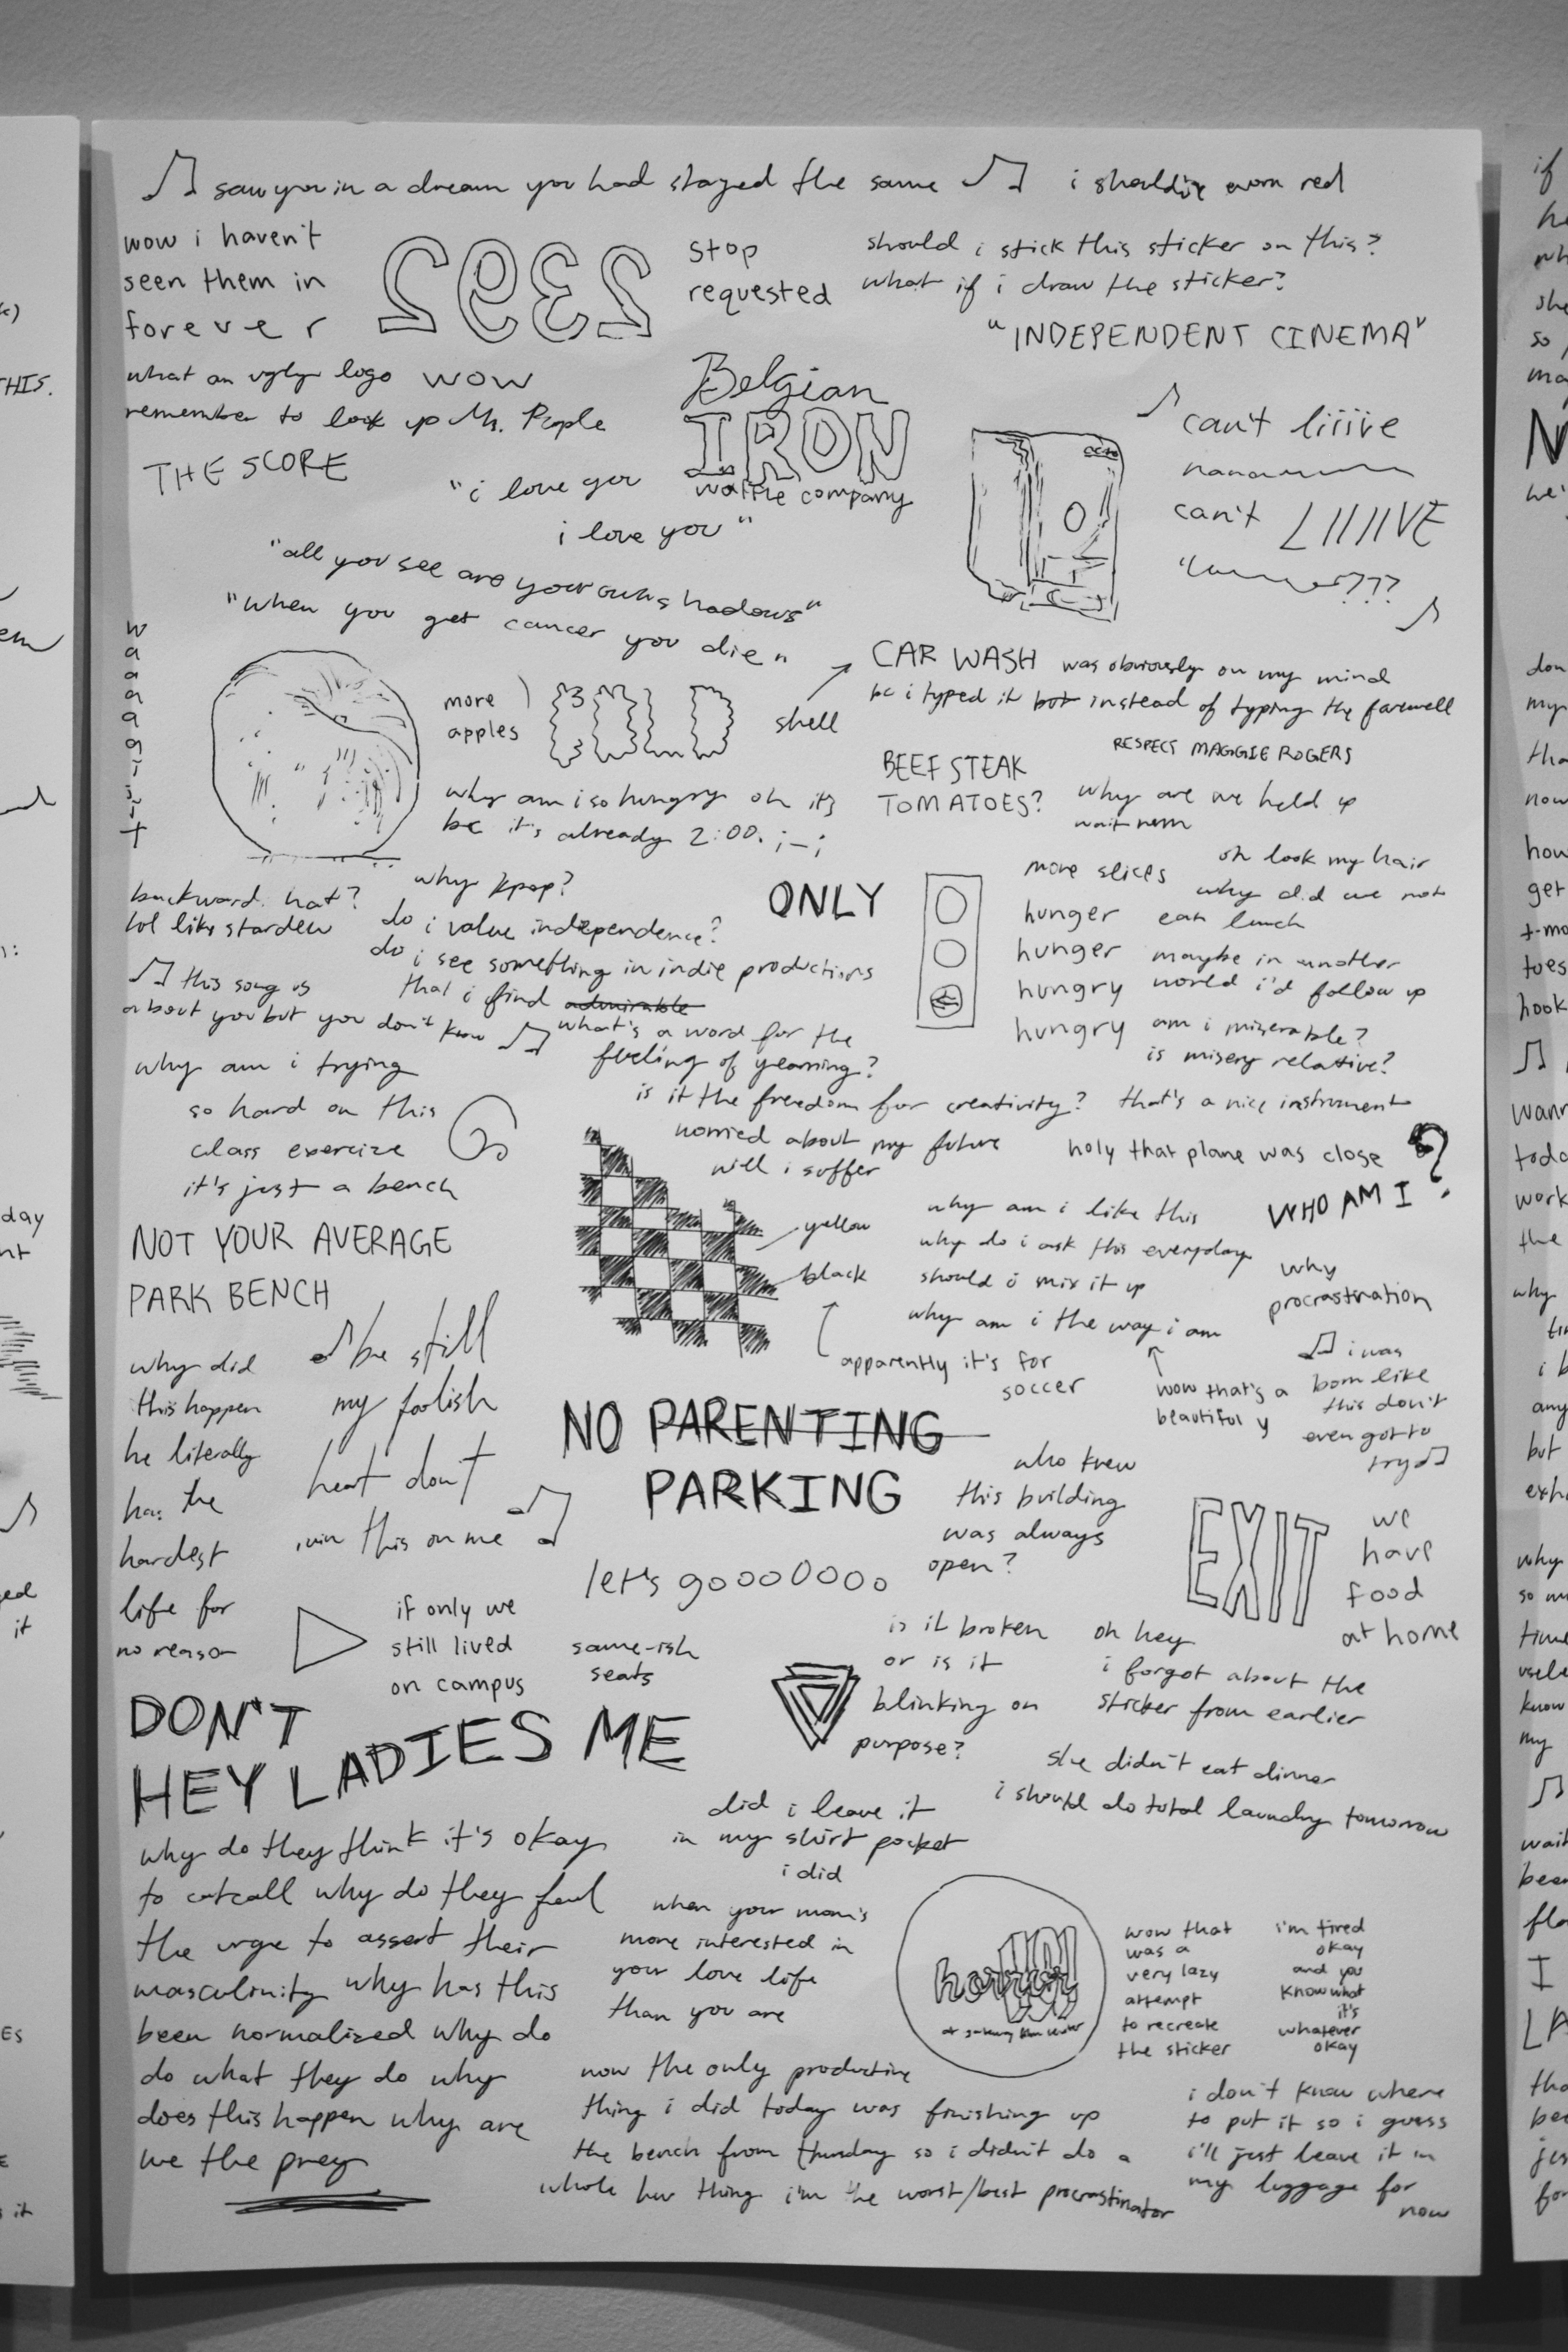 saw you in a dream you had stayed the same
i should've worn red
wow i haven't
seen them in
forever
2392
stop
requested
should i stick this sticker on this?
what if i draw the sticker?
"INDEPENDENT CINEMA"
what an ugly logo wow
remember to look up Mr. People
THE SCORE
Belgian
IRON
waffle company
"i love you
i love you"
can't liiiive
can't LIIIIVE
???
"all you see are your own shadows"
"when you get cancer you die"
more
apples
shell
CAR WASH was obviously on my mind
bc i typed it but instead of typing the farewell
RESPECT MAGGIE ROGERS
BEEF STEAK
TOMATOES?
why are we held up
wait nvm
why am i so hungry oh it's
bc it's already 2:00. ;-;
backward hat?
lol like stardew
why kpop?
do i value independence?
do i see something in indie productions
that i find admirable
what's a word for the
feeling of yearning?
is it the freedom for creativity?
ONLY
more slices
hunger
hunger
hungry
hungry
oh look my hair
why did we not
eat lunch
maybe in another
world i'd follow up
am i miserable?
is misery relative?
this song is
about you but you don't know
why am i trying
so hard on this
class exercise
it's just a bench
that's a nice instrument
worried about my future
will i suffer
holy that plane was close
WHO AM I?
NOT YOUR AVERAGE
PARK BENCH
yellow
black
apparently it's for
soccer
why am i like this
why do i ask this everyday
should i mix it up
why am i the way i am
wow that's a
beautiful y
why
procrastination
i was
born like
this don't
even got to
try
why did
this happen
he literally
has the
hardest
life for
no reason
be still
my foolish
heart don't
ruin this on me
NO PARENTING
PARKING
let's gooooooo
who knew
this building
was always
open?
EXIT
we
have
food
at home
if only we
still lived
on campus
same-ish
seats
is it broken
or is it
blinking on
purpose?
oh hey
i forgot about the
sticker from earlier
DON'T
HEY LADIES ME
she didn't eat dinner
i should do total laundry tomorrow
why do they think it's okay
to catcall why do they feel
the urge to assert their
masculinity why has this
been normalized why do
do what they do why
does this happen why are
we the prey
did i leave it
in my shirt pocket
i did
when your mom's
more interested in
your love life
than you are
horror
101
wow that
was a
very lazy
attempt
to recreate
the sticker
i'm tired
okay
and you
know what
it's
whatever
okay
now the only productive
thing i did today was finishing up
the bench from thursday so i didn't do a
whole new thing i'm the worst/best procrastinator
i don't know where
to put it so i guess
i'll just leave it in
my luggage for
now